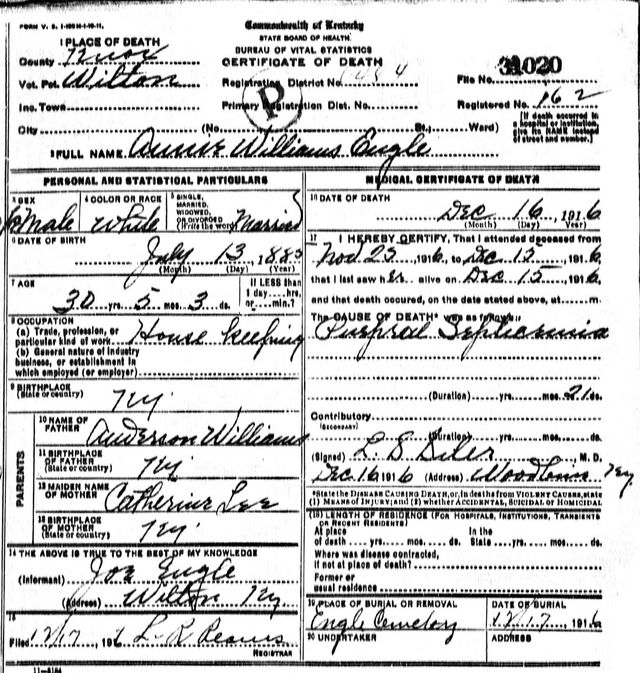 FORM V. S. 1-
Commonwealth of Kentucky
STATE BOARD OF HEALTH
BUREAU OF VITAL STATISTICS
CERTIFICATE OF DEATH
1 PLACE OF DEATH
County Knox
Vot. Pct. Wilton
Registration District No.
File No. 31020
Inc. Town
Primary Registration Dist. No.
Registered No. 162
P
City (No. St.; Ward)
[If death occurred in a hospital or institution, give its NAME instead of street and number.]
2 FULL NAME Annie Williams Engle
PERSONAL AND STATISTICAL PARTICULARS
3 SEX
feMale
4 COLOR OR RACE
White
5 SINGLE, MARRIED, WIDOWED, OR DIVORCED (Write the word)
Married
6 DATE OF BIRTH
July 13, 1885
(Month) (Day) (Year)
7 AGE
30 yrs. 5 mos. 3 ds.
If LESS than 1 day....hrs. or....min.?
8 OCCUPATION
(a) Trade, profession, or particular kind of work House keeping
(b) General nature of industry business, or establishment in which employed (or employer)
9 BIRTHPLACE (State or country)
Ky.
PARENTS
10 NAME OF FATHER
Anderson Williams
11 BIRTHPLACE OF FATHER (State or country)
Ky
12 MAIDEN NAME OF MOTHER
Catherine Lee
13 BIRTHPLACE OF MOTHER (State or country)
Ky.
14 THE ABOVE IS TRUE TO THE BEST OF MY KNOWLEDGE
(Informant) Joe Engle
(Address) Wilton Ky
15
Filed 12/17, 191 L. R. REGISTRAR
11-
MEDICAL CERTIFICATE OF DEATH
16 DATE OF DEATH
Dec 16, 1916
(Month) (Day) (Year)
17 I HEREBY CERTIFY, That I attended deceased from
Nov 25, 1916, to Dec 15, 1916,
that I last saw her alive on Dec 15, 1916,
and that death occured, on the date stated above, at m.
The CAUSE OF DEATH* was as follows:
Purpral Septicemia
(Duration) yrs. mos. 21 ds.
Contributory
(SECONDARY)
(Duration) yrs. mos. ds.
(Signed) L. S. Siler, M. D.
Dec 16, 1916 (Address) Woodbine Ky
*State the DISEASE CAUSING DEATH, or, in deaths from VIOLENT CAUSES, state (1) MEANS OF INJURY; and (2) whether ACCIDENTAL, SUICIDAL or HOMICIDAL
18) LENGTH OF RESIDENCE (FOR HOSPITALS, INSTITUTIONS, TRANSIENTS OR RECENT RESIDENTS)
At place of death yrs. mos. ds. In the State yrs. mos. ds.
Where was disease contracted, if not at place of death?
Former or usual residence
19 PLACE OF BURIAL OR REMOVAL
Engle Cemetery
DATE OF BURIAL
12/17, 1916
20 UNDERTAKER
ADDRESS